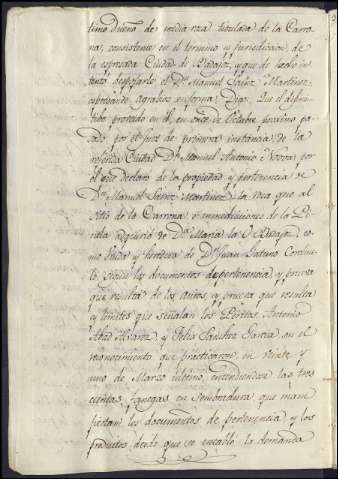 timo Dueño de media roza titulada de la Carro
na, consistente en el termino y jurisdiccion de
la espresada Ciudad de Badajoz, y que de hecho in
tentó despojarle el Dn. Manuel Saenz Martinez
espresando agravios en forma, Digo: Que el defini
tibo proveido en el, en once de Octubre proximo pa
sado por el Juez de primera instancia de la
referida Ciudad Dn. Manuel Antonio por
el que declaro de la propiedad y pertenencia de
Dn. Manuel Martinez la roza que al
sitio de la Carrona ó inmediaciones de la
adquirió de Da. Maria la O co
mo hija y heredera de Dn. Juan
segun los documentos de pertenencia y prueba
que resulta de los autos, y prueva que resulta
y limites que señalan los Peritos Antonio
Alvarez y Felix Sanchez Garcia en el
reconocimiento que practicaron en veinte y
uno de Marzo ultimo, entendiendose las tres
cientas fanegas en sembradura, que mani
fiestan los documentos de pertenencia y los
productos desde que se entabló la demanda